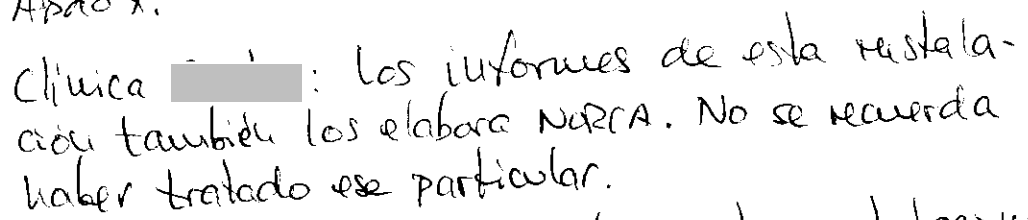 Clínica : los informes de esta instala-
ción también los elabora NORCA. No se recuerda
haber tratado ese particular.